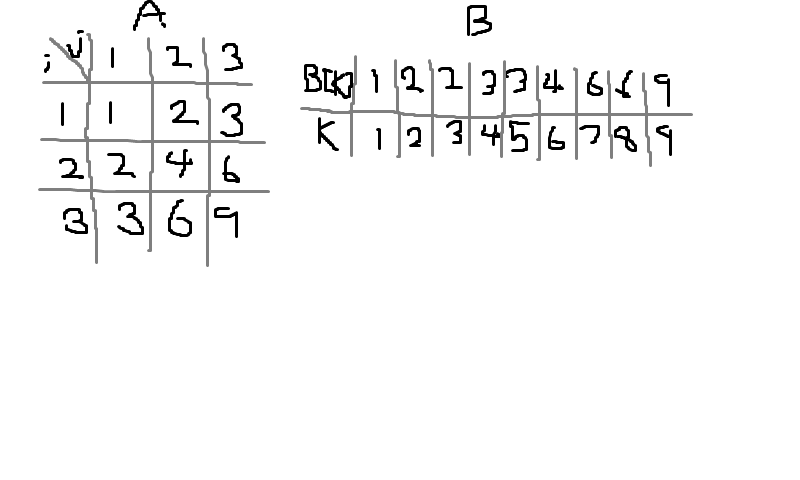 A
i j 1 2 3
1 1 2 3
2 2 4 6
3 3 6 9
B
B[K] 1 2 2 3 3 4 6 6 9
K 1 2 3 4 5 6 7 8 9